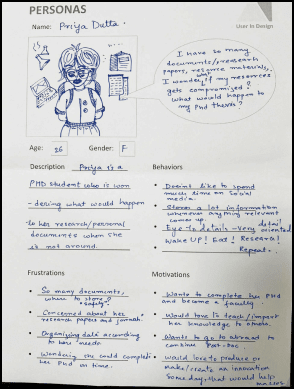 PERSONAS
User In Design
Name: Priya Dutta.
I have so many
documents/research
papers, resource materials.
I wonder, if my resources
gets compromised?
what would happen to
my PhD thesis?
Age: 26
Gender: F
Description Priya is a
PHD student who is won
-dering what would happen
to her research/personal
documents when she
is not around.
Behaviors
• Doesn't like to spend
much time on social
media.
• Stores a lot information
whenever anything relevant
comes up.
• Eye-to detail - very detail oriented
WAKE UP! Eat! Research!
Repeat.
Frustrations
• So many documents,
where to store? safety?
• Concerned about her
research papers and journals.
• Organizing data according
to her needs.
• Wondering she could complete
her PhD in time.
Motivations
• Wants to complete her PhD
and become a faculty.
• Would love to teach/impart
her knowledge to others.
• Wants to go abroad to
continue Post-Doc.
• Would love to produce or
make/create an innovation
Someday, that would help